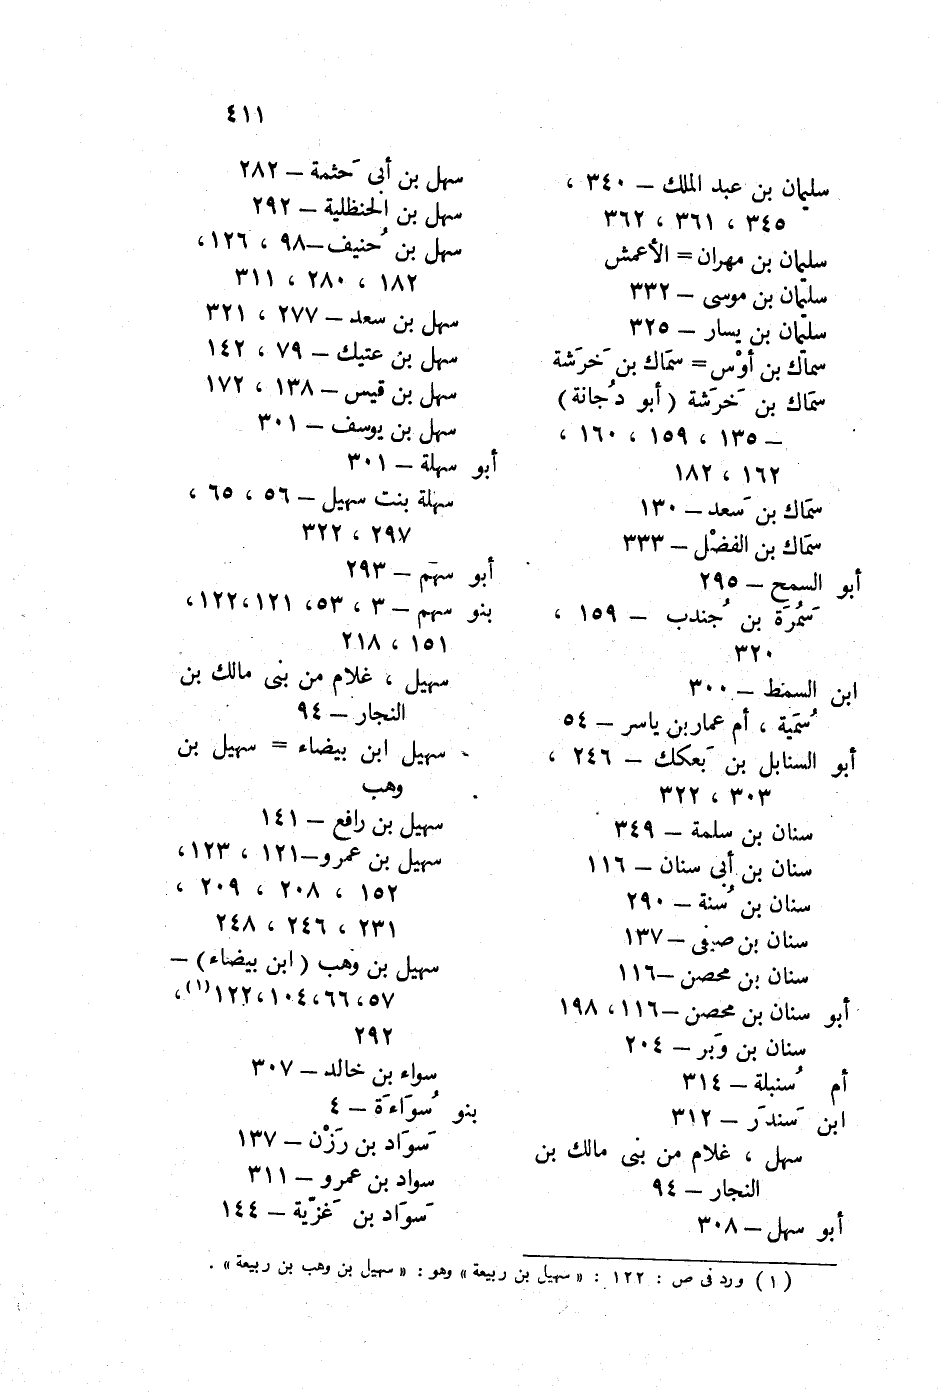 ٤١١
سليمان بن عبد الملك – ٣٤٠ ،
٣٤٥ ، ٣٦١ ، ٣٦٢
سليمان بن مهران = الأعمش
سليمان بن موسى – ٣٣٢
سليمان بن يسار – ٣٢٥
سماك بن أوْس = سمَاك بن خَرَشة
سمَاك بن خَرَشة (أبو دُجانة)
– ١٣٥ ، ١٥٩ ، ١٦٠ ،
١٦٢ ، ١٨٢
سمَاك بن سَعد – ١٣٠
سمَاك بن الفضْل – ٣٣٣
أبو السمح – ٢٩٥
سَمُرَة بن جُندب – ١٥٩ ،
٣٢٠
ابن السمط – ٣٠٠
سُمَية ، أم عمار بن ياسر – ٥٤
أبو السنابل بن بَعكك – ٢٤٦ ،
٣٠٣ ، ٣٢٢
سنان بن سلمة – ٣٤٩
سنان بن أبى سنان – ١١٦
سنان بن سُنة – ٢٩٠
سنان بن صيفى – ١٣٧
سنان بن محصن – ١١٦
أبو سنان بن محصن – ١١٦ ، ١٩٨
سنان بن وَبر – ٢٠٤
أم سُنبلة – ٣١٤
ابن سَندَر – ٣١٢
سهل ، غلام من بنى مالك بن
النجار – ٩٤
أبو سهل – ٣٠٨
سهل بن أبى حَثمة – ٢٨٢
سهل بن الحنظلية – ٢٩٢
سهل بن حُنيف – ٩٨ ، ١٢٦ ،
١٨٢ ، ٢٨٠ ، ٣١١
سهل بن سعد – ٢٧٧ ، ٣٢١
سهل بن عتيك – ٧٩ ، ١٤٢
سهل بن قيس – ١٣٨ ، ١٧٢
سهل بن يوسف – ٣٠١
أبو سهلة – ٣٠١
سهلة بنت سهيل – ٥٦ ، ٦٥ ،
٢٩٧ ، ٣٢٢
أبو سهم – ٢٩٣
بنو سهم – ٣ ، ٥٣ ، ١٢١ ، ١٢٢ ،
١٥١ ، ٢١٨
سهيل ، غلام من بنى مالك بن
النجار – ٩٤
سهيل ابن بيضاء = سهيل بن
وهب
سهيل بن رافع – ١٤١
سهيل بن عمرو – ١٢١ ، ١٢٣ ،
١٥٢ ، ٢٠٨ ، ٢٠٩ ،
٢٣١ ، ٢٤٦ ، ٢٤٨
سهيل بن وهب (ابن بيضاء) –
٥٧ ، ٦٦ ، ١٠٤ ، ١٢٢(١) ،
٢٩٢
سواء بن خالد – ٣٠٧
بنو سُوَاءَة – ٤
سَوَاد بن رَزْن – ١٣٧
سواد بن عمرو – ٣١١
سَوَاد بن غَزيّة – ١٤٤
(١) ورد فى ص : ١٢٢ : « سهيل بن ربيعة » وهو : « سهيل بن وهب بن ربيعة » .